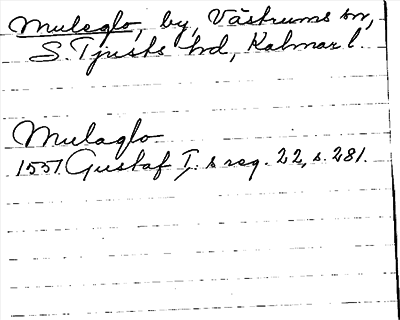 Muleglo, by, Västrums sn,
S. Tjusts hd, Kalmar l.
Mulaglo
1551 Gustaf I:s reg. 22, s. 281.